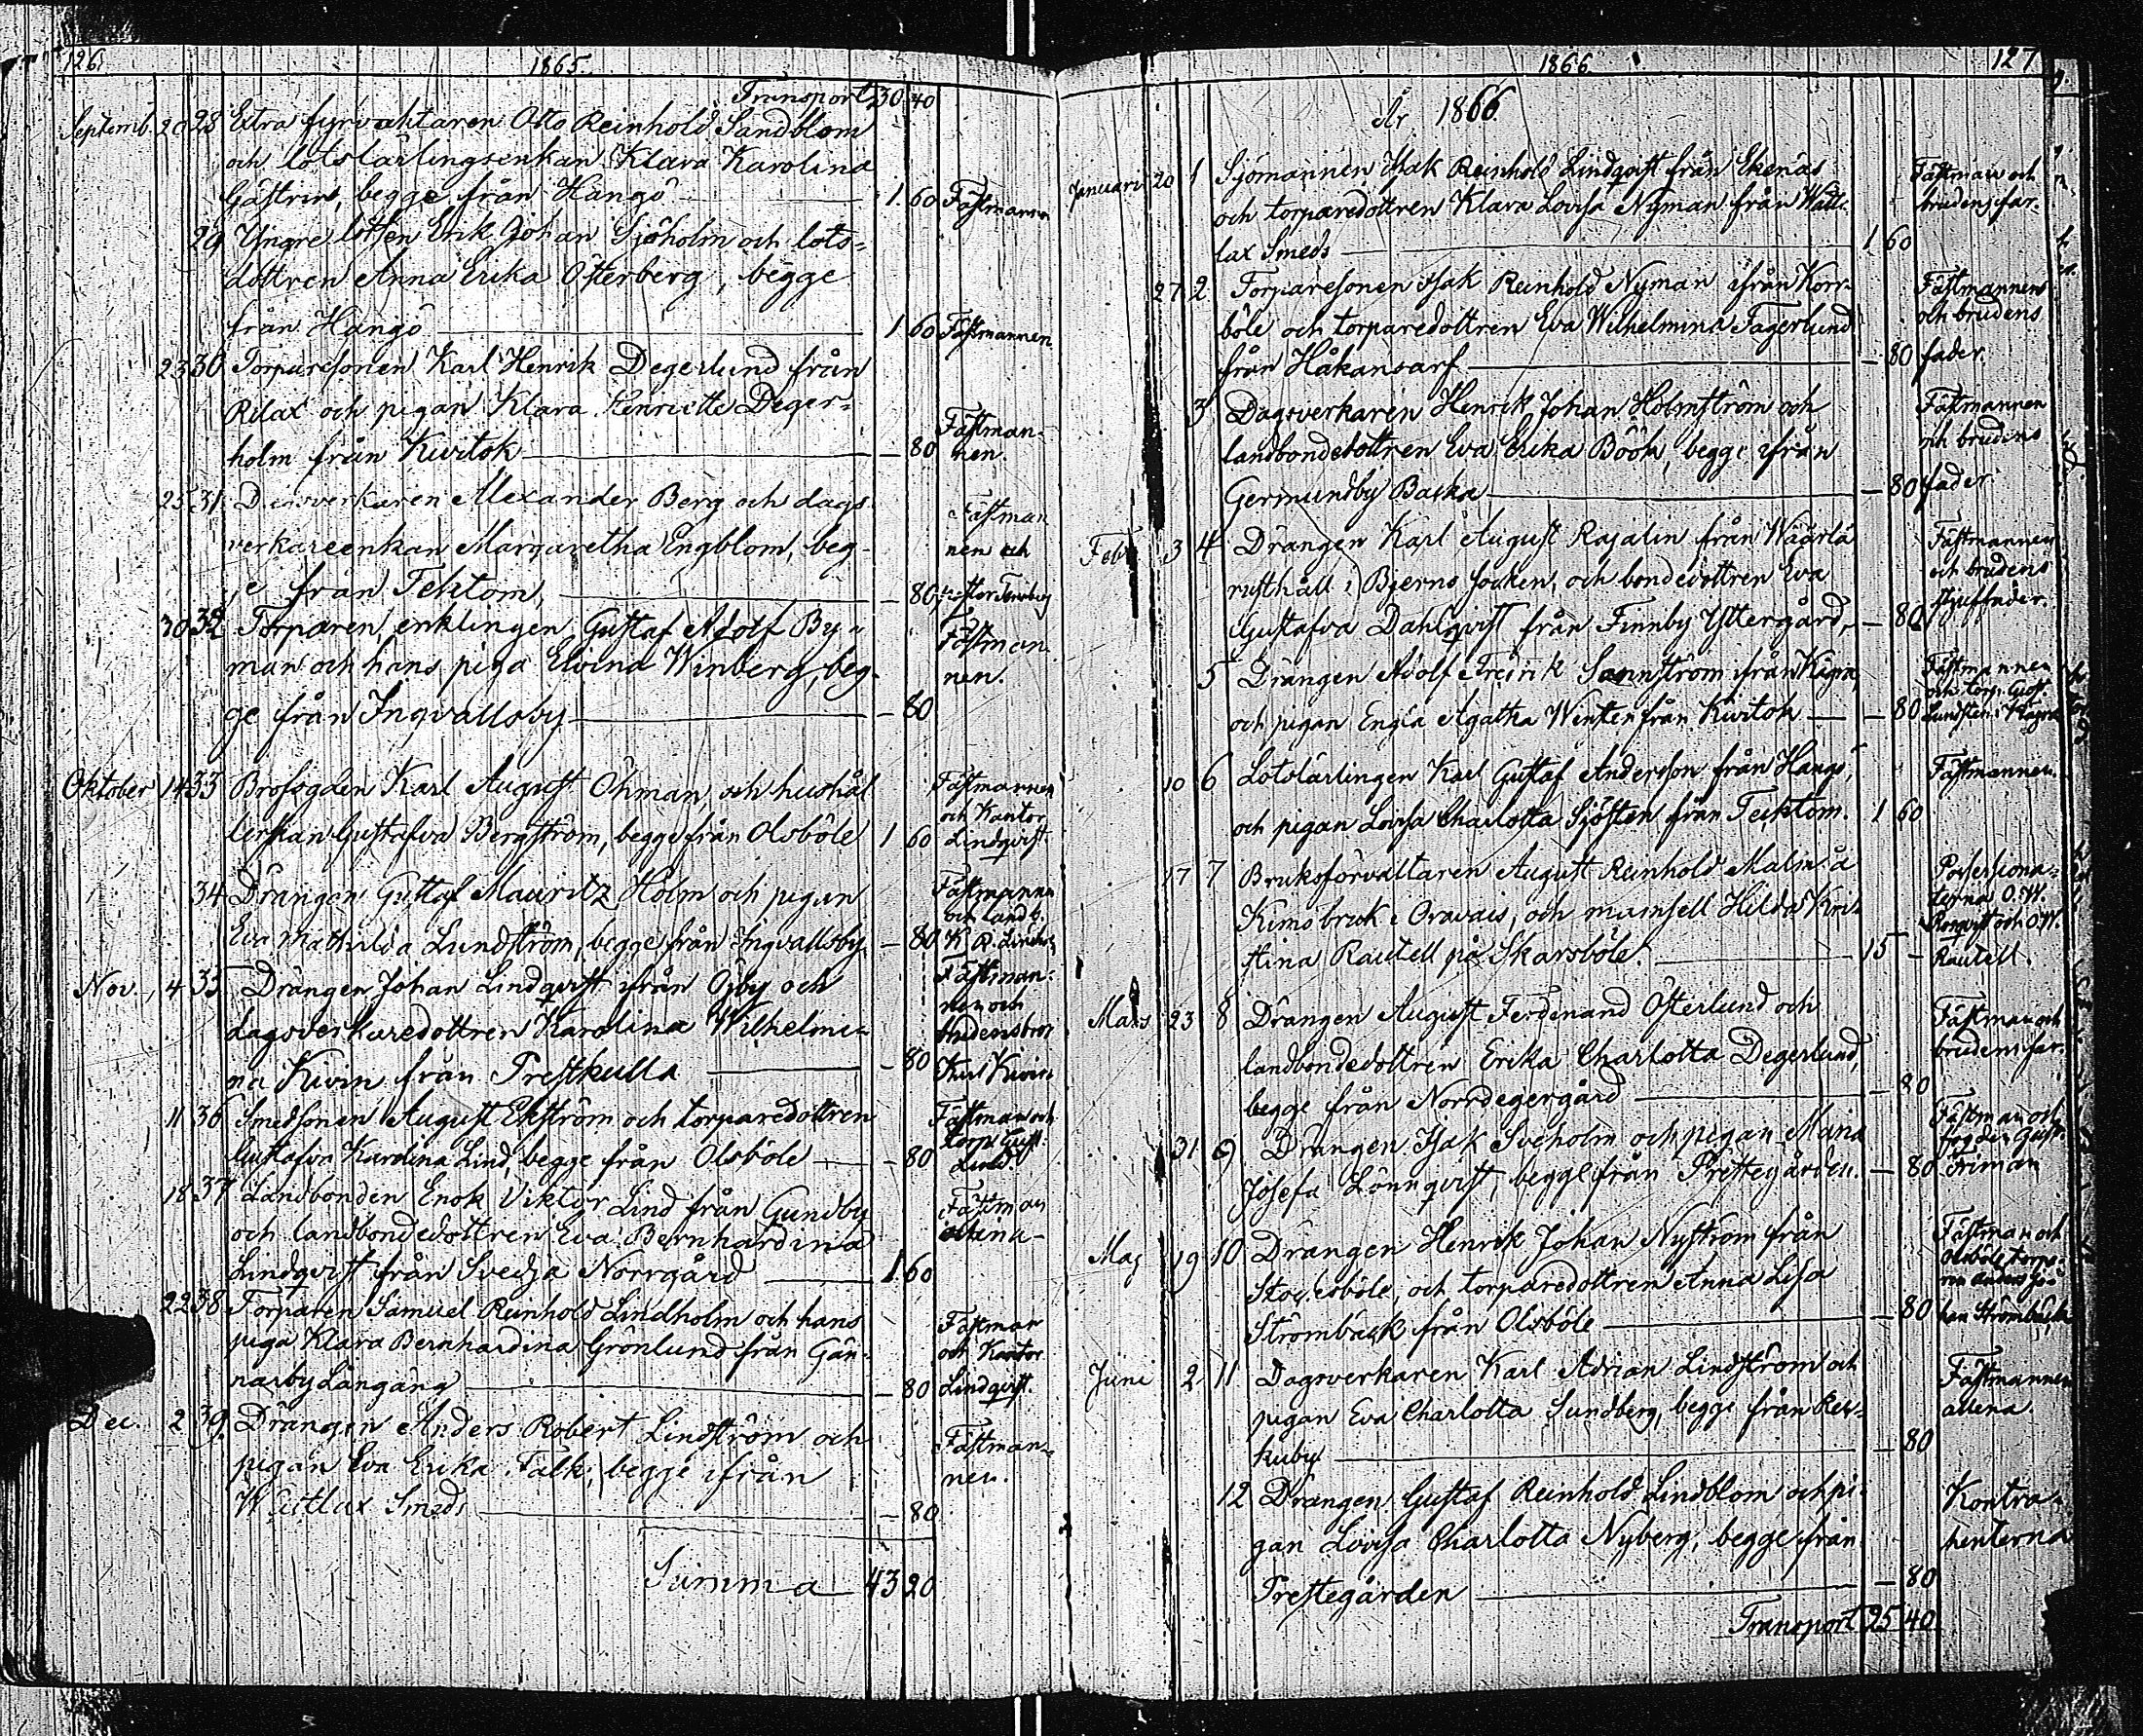 126.
1865.
Transport 30 40
Septemb. 20 28 Extra fyrvaktaren Otto Reinhold Sandblom
och lotslärlingsenkan Klara Karolina
Gästrin, begge från Hangö 1 60 Fästmannen
29 Yngre lotsen Erik Johan Sjöholm och lots-
dottren Anna Erika Österberg, begge
från Hangö 1 60 Fästmannen
23 30 Torparesonen Karl Henrik Degerlund från
Rilax och pigan Klara Henriette Deger-
holm från Kivitok — 80 Fästman-
nen.
25 31 Dagsverkaren Alexander Berg och dags-
verkareenkan Margaretha Engblom, beg-
ge från Tektom, — 80 Fästman
nen och
30 32 Torparen, enklingen Gustaf Adolf By-
man och hans piga Elvina Winberg, beg-
ge från Ingvallsby — 80 Fästman-
nen.
Oktober 14 33 Brofogden Karl August Öhman, och hushål
lerskan Gustafva Bergström, begge från Olsböle 1 60 Fästmannen
och Kantor
Lindqvist.
34 Drängen Gustaf Mauritz Holm och pigan
Eva Mathilda Lundström, begge från Ingvallsby — 80 Fästmannen
och landb.
Nov. 4 35 Drängen Johan Lindqvist ifrån Öjby och
dagsverkaredottren Karolina Wilhelmi-
na Kivin från Prestkulla — 80 Fästman-
nen och
brudens bror
Karl Kivin
11 36 Smedsonen August Ekström och torparedottren
Gustafva Karolina Lind, begge från Olsböle — 80 Fästman och
torp. Gust.
Lind.
18 37 Landbonden Enok Viktor Lind från Gundby
och landbondedottren Eva Bernhardina
Lindqvist från Svedja Norrgård 1 60 Fästman
allena
22 38 Torparen Samuel Reinhold Lindholm och hans
piga Klara Bernhardina Grönlund från Gän-
narby Långäng — 80 Fästman
och Kantor
Lindqvist.
Dec. 2 39. Drängen Anders Robert Lindström och
pigan Eva Erika Falk, begge ifrån
Wättlax Smeds — 80 Fästman-
nen.
Summa 43 20
1866
127
År 1866.
Januari 20 1 Sjömannen Isak Reinhold Lindqvist från Ekenäs
och torparedottren Klara Lovisa Nyman från Wätt-
lax Smeds 1 60 Fästman och
brudens far.
27 2 Torparesonen Isak Reinhold Nyman ifrån Korr-
böle och torparedottren Eva Wilhelmina Fagerlund
från Håkansarf — 80 Fästmannen
och brudens
fader.
3 Dagsverkaren Henrik Johan Holmström och
landbondedottren Eva Erika Böök, begge ifrån
Germundby Backa — 80 Fästmannen
och brudens
fader
Feb. 3 4 Drängen Karl August Rajalin från Wäärlä
rusthåll i Bjerno socken, och bondedottren Eva
Gustafva Dahlqvist från Finnby Yttergård, — 80 Fästmannen
och brudens
styffader.
5 Drängen Adolf Fredrik Sannström ifrån Kägra,
och pigan Engla Agatha Winter från Kivitok — 80 Fästmannen
och torp. Gust.
Lundsten i Kägra
10 6 Lotslärlingen Karl Gustaf Andersson från Hangö,
och pigan Lovisa Charlotta Sjösten från Tecktom. 1 60 Fästmannen.
17 7 Bruksförvaltaren August Reinhold Malm å
Kimo bruk i Oravais, och mamsell Hilda Kri-
stina Rautell på Skarsböle. 15 — Possessiona-
terna O.W.
Rosqvist och O.W.
Rautell.
Mars 23 8 Drängen August Ferdinand Österlund och
landbondedottren Erika Charlotta Degerlund,
begge från Norrdegergård — 80 Fästman och
brudens far.
31 9 Drängen Isak Sveholm och pigan Maria
Josefa Lönnqvist, begge från Prestegården. — 80 Fästman och
fogden Gust.
Friman
Maj 19 10 Drängen Henrik Johan Nyström från
Stockesböle, och torparedottren Anna Lisa
Strömbäck från Olsböle — 80 Fästman och
Olsböle torpa-
ren Anders Jo-
han Strömbäck
Juni 2 11 Dagsverkaren Karl Adrian Lindström och
pigan Eva Charlotta Sundberg, begge från Rek-
kuby — 80 Fästmannen
allena.
12 Drängen Gustaf Reinhold Lindblom och pi-
gan Lovisa Charlotta Nyberg, begge från
Prestegården — 80 Kontra-
henterna
Transport 25 40